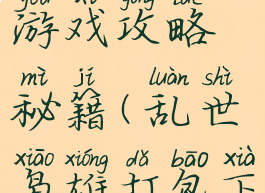 yóu xì gōng lüè
游戏攻略
mì jí luàn shì
秘籍(乱世
xiāo xióng dǎ bāo xià
枭雄打包下